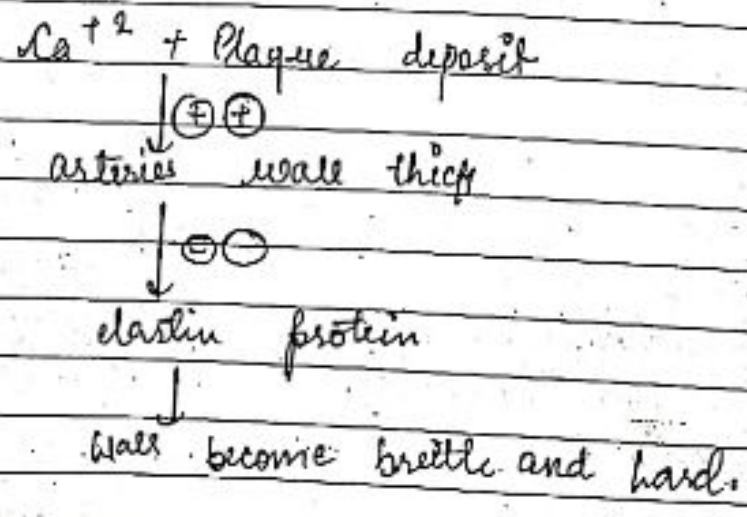 Ca+2 + Plaque deposit
↓ ⊕ ⊕
arteries wall thick
↓ ⊖ ⊖
elastin protein
↓
Walls become brittle and hard.